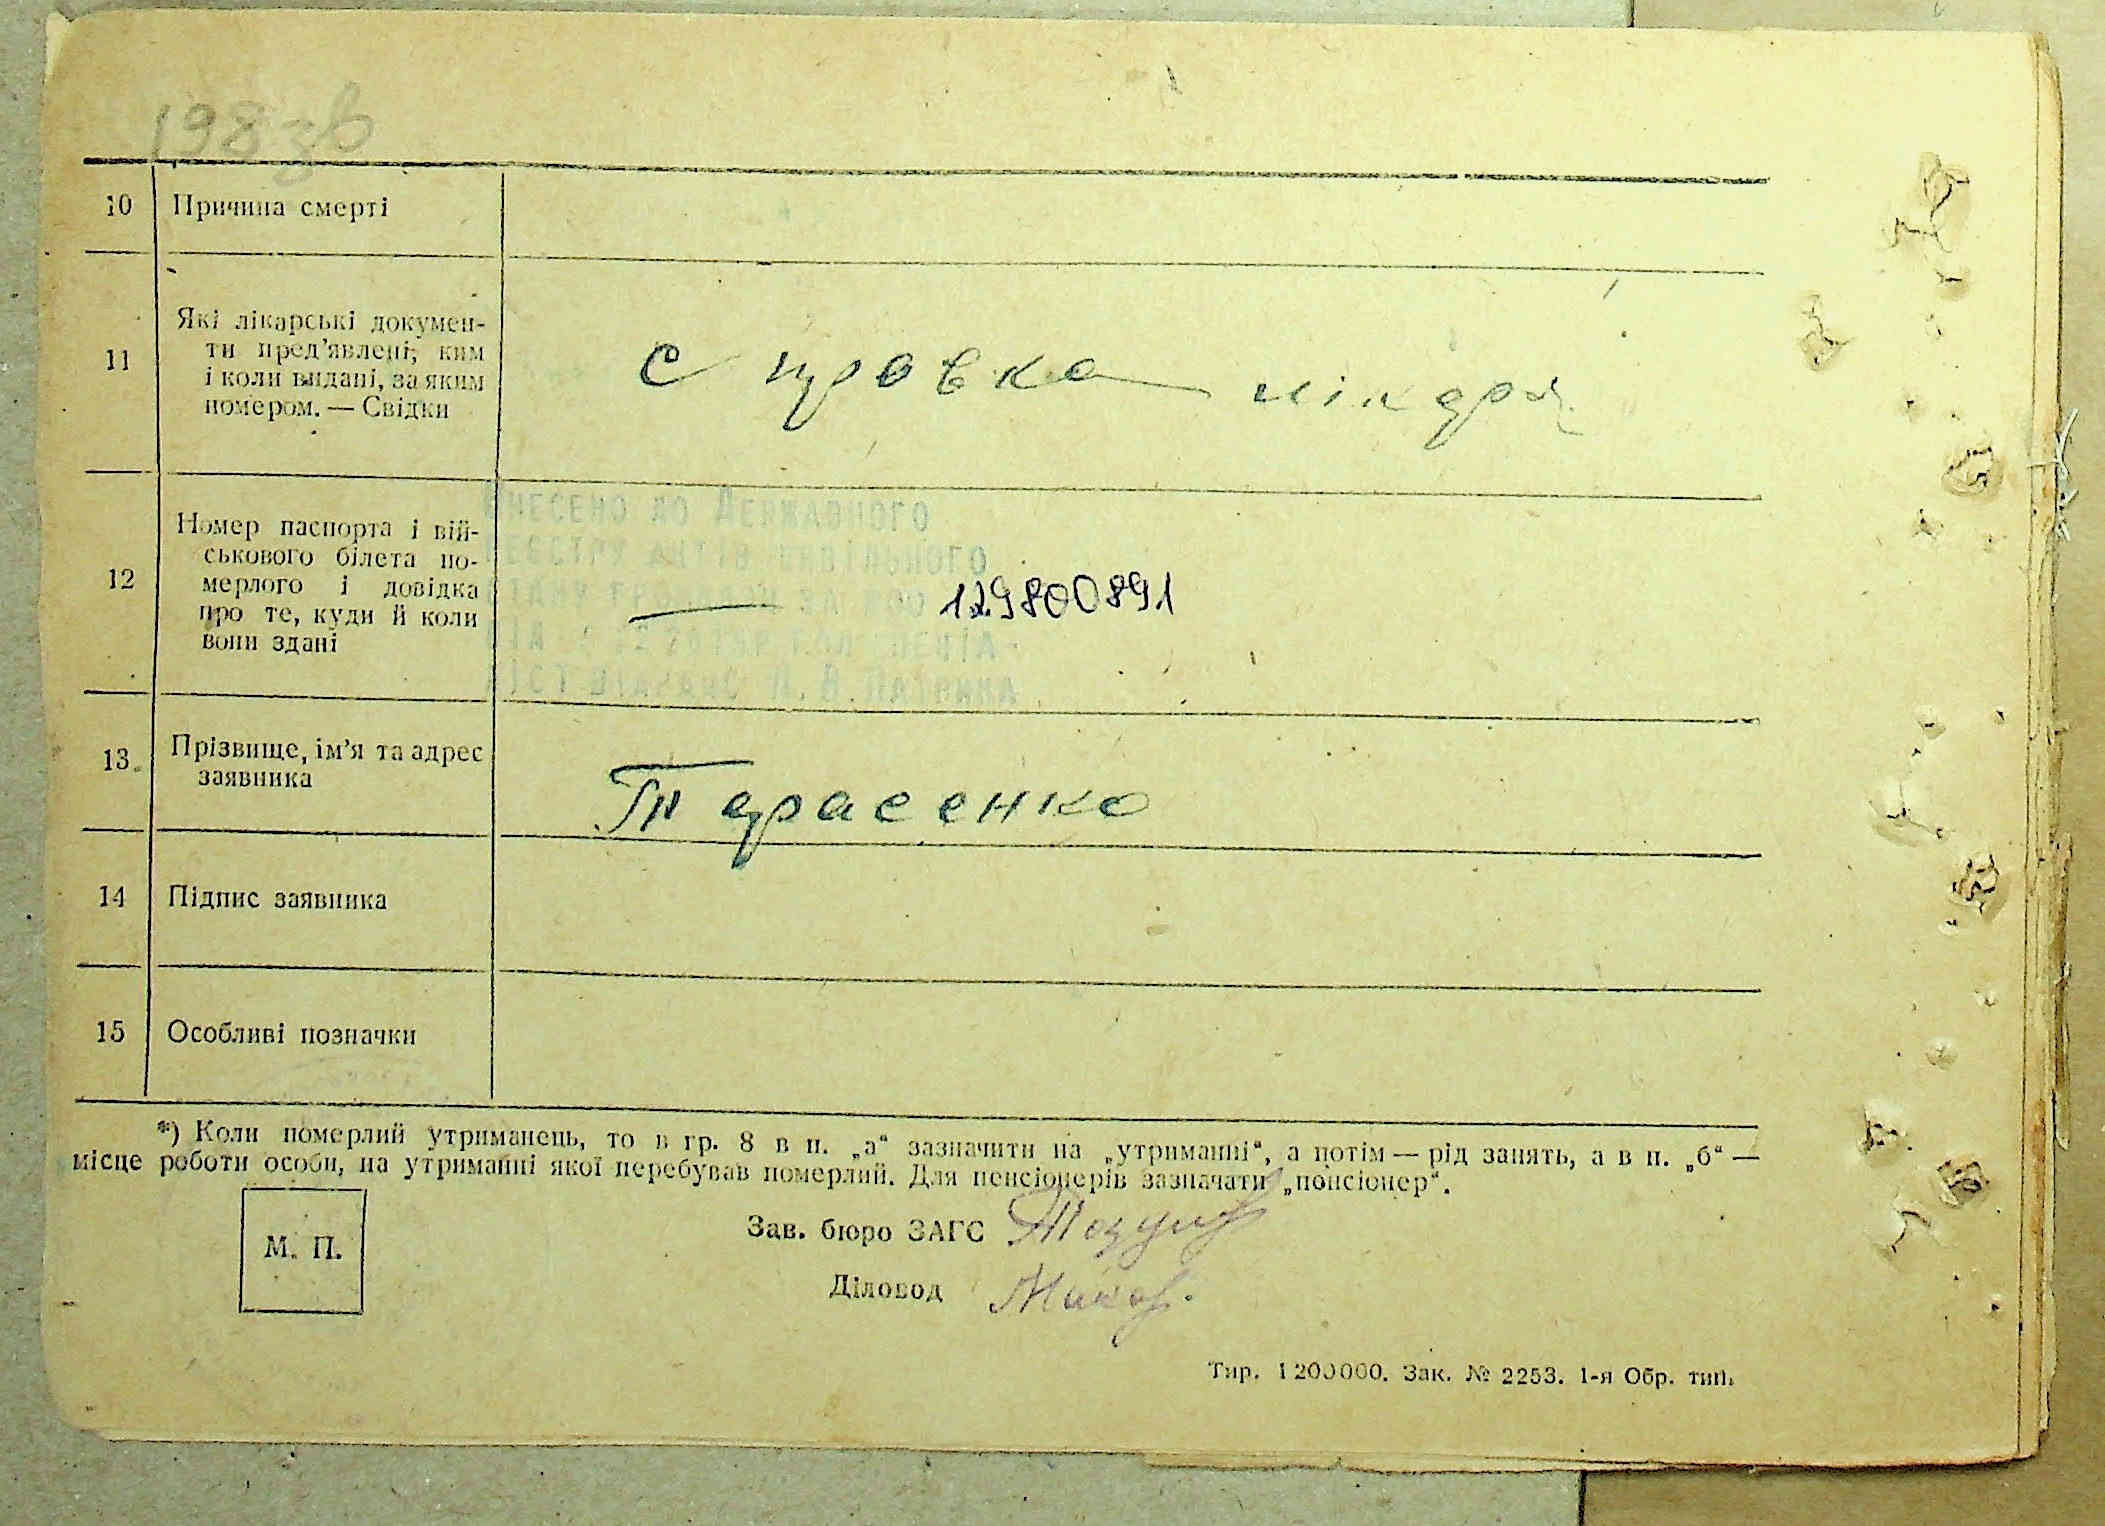 198 зв
10 Причина смерті
11 Які лікарські докумен-
ти пред'явлені, ким
і коли видані, за яким
номером. — Свідки
справка лікаря
12 Номер паспорта і вій-
ськового білета по-
мерлого і довідка
про те, куди й коли
вони здані
Внесено до Державного
реєстру актів цивільного
стану громадян за №
129800891
13 Прізвище, ім'я та адрес
заявника
Тарасенко
14 Підпис заявника
15 Особливі позначки
*) Коли померлий утриманець, то в гр. 8 в п. „а“ зазначити на „утриманні“, а потім — рід занять, а в п. „б“ —
місце роботи особи, на утриманні якої перебував померлий. Для пенсіонерів зазначати „пенсіонер“.
М. П.
Зав. бюро ЗАГС
Діловод
Тир. 1200000. Зак. № 2253. 1-я Обр. тип.